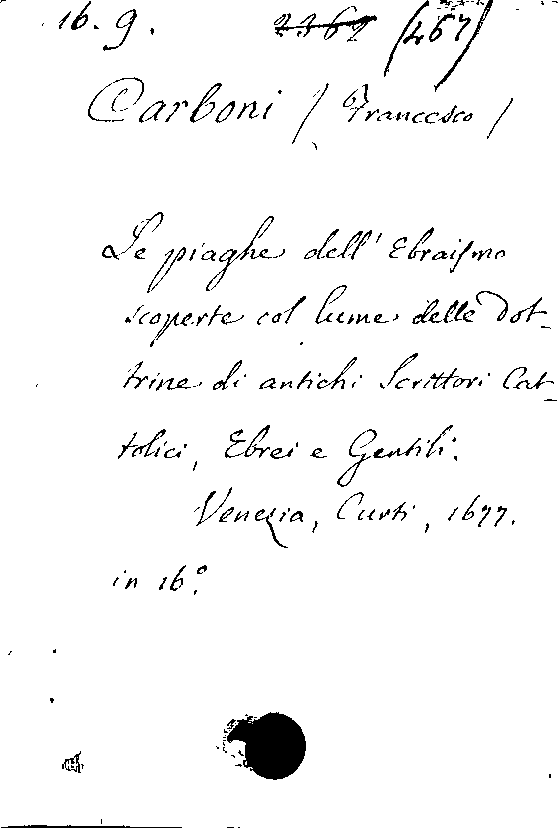 16. 9. 2362 (467)
Carboni / Francesco /
Le piaghe dell' Ebraismo
scoperte col lume delle Dot-
trine di antichi Scrittori Cat-
tolici, Ebrei e Gentili.
Venezia, Curti, 1677.
in 16.º